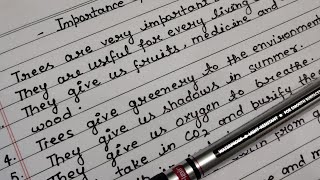 - Importance
Trees are very important
They are useful for every living
They give us fruits, medicine and
wood.
4. Trees give greenery to the environment
5. They give us shadows in summer.
They give us oxygen to breathe.
take in CO2 and purify the
from
and m